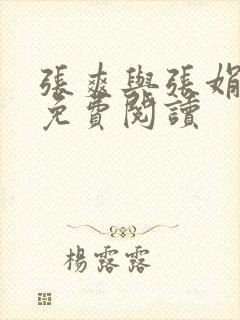 張爽與張娟
免費閱讀
楊露露